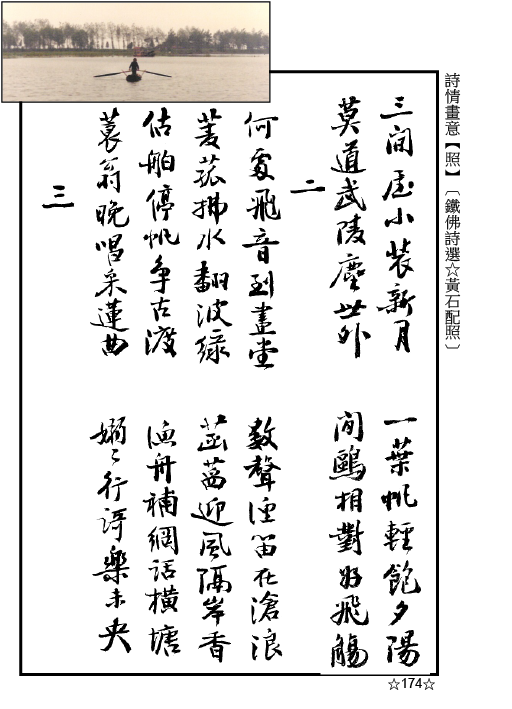 詩情畫意【照】﹝鐵佛詩選☆黃石配照﹞
三間屋小裝新月 一葉帆輕飽夕陽
莫道武陵塵世外 閒鷗相對好飛觴
二
何處飛音到畫堂 數聲漁笛在滄浪
菱菰拂水翻波綠 菡萏迎風隔岸香
估舶停帆爭古渡 漁舟補網話橫塘
蓑翁晚唱采蓮曲 嫋〻行謌樂未央
三
☆174☆